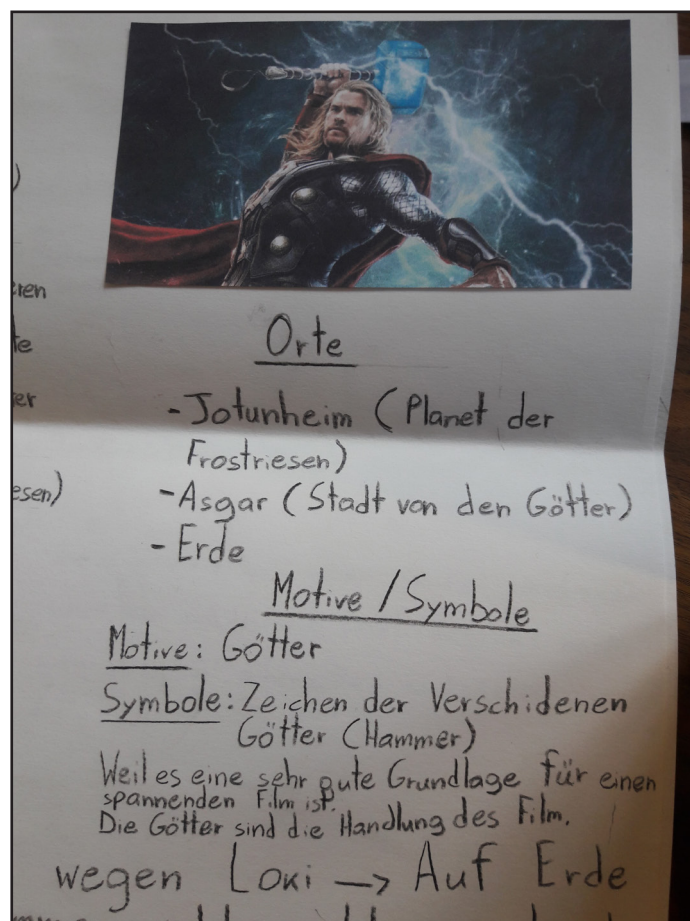 )
ren
te
er
esen)
Orte
- Jotunheim (Planet der
Frostriesen)
- Asgar (Stadt von den Götter)
- Erde
Motive / Symbole
Motive: Götter
Symbole: Zeichen der Verschidenen
Götter (Hammer)
Weil es eine sehr gute Grundlage für einen
spannenden Film ist.
Die Götter sind die Handlung des Film.
wegen Loki → Auf Erde